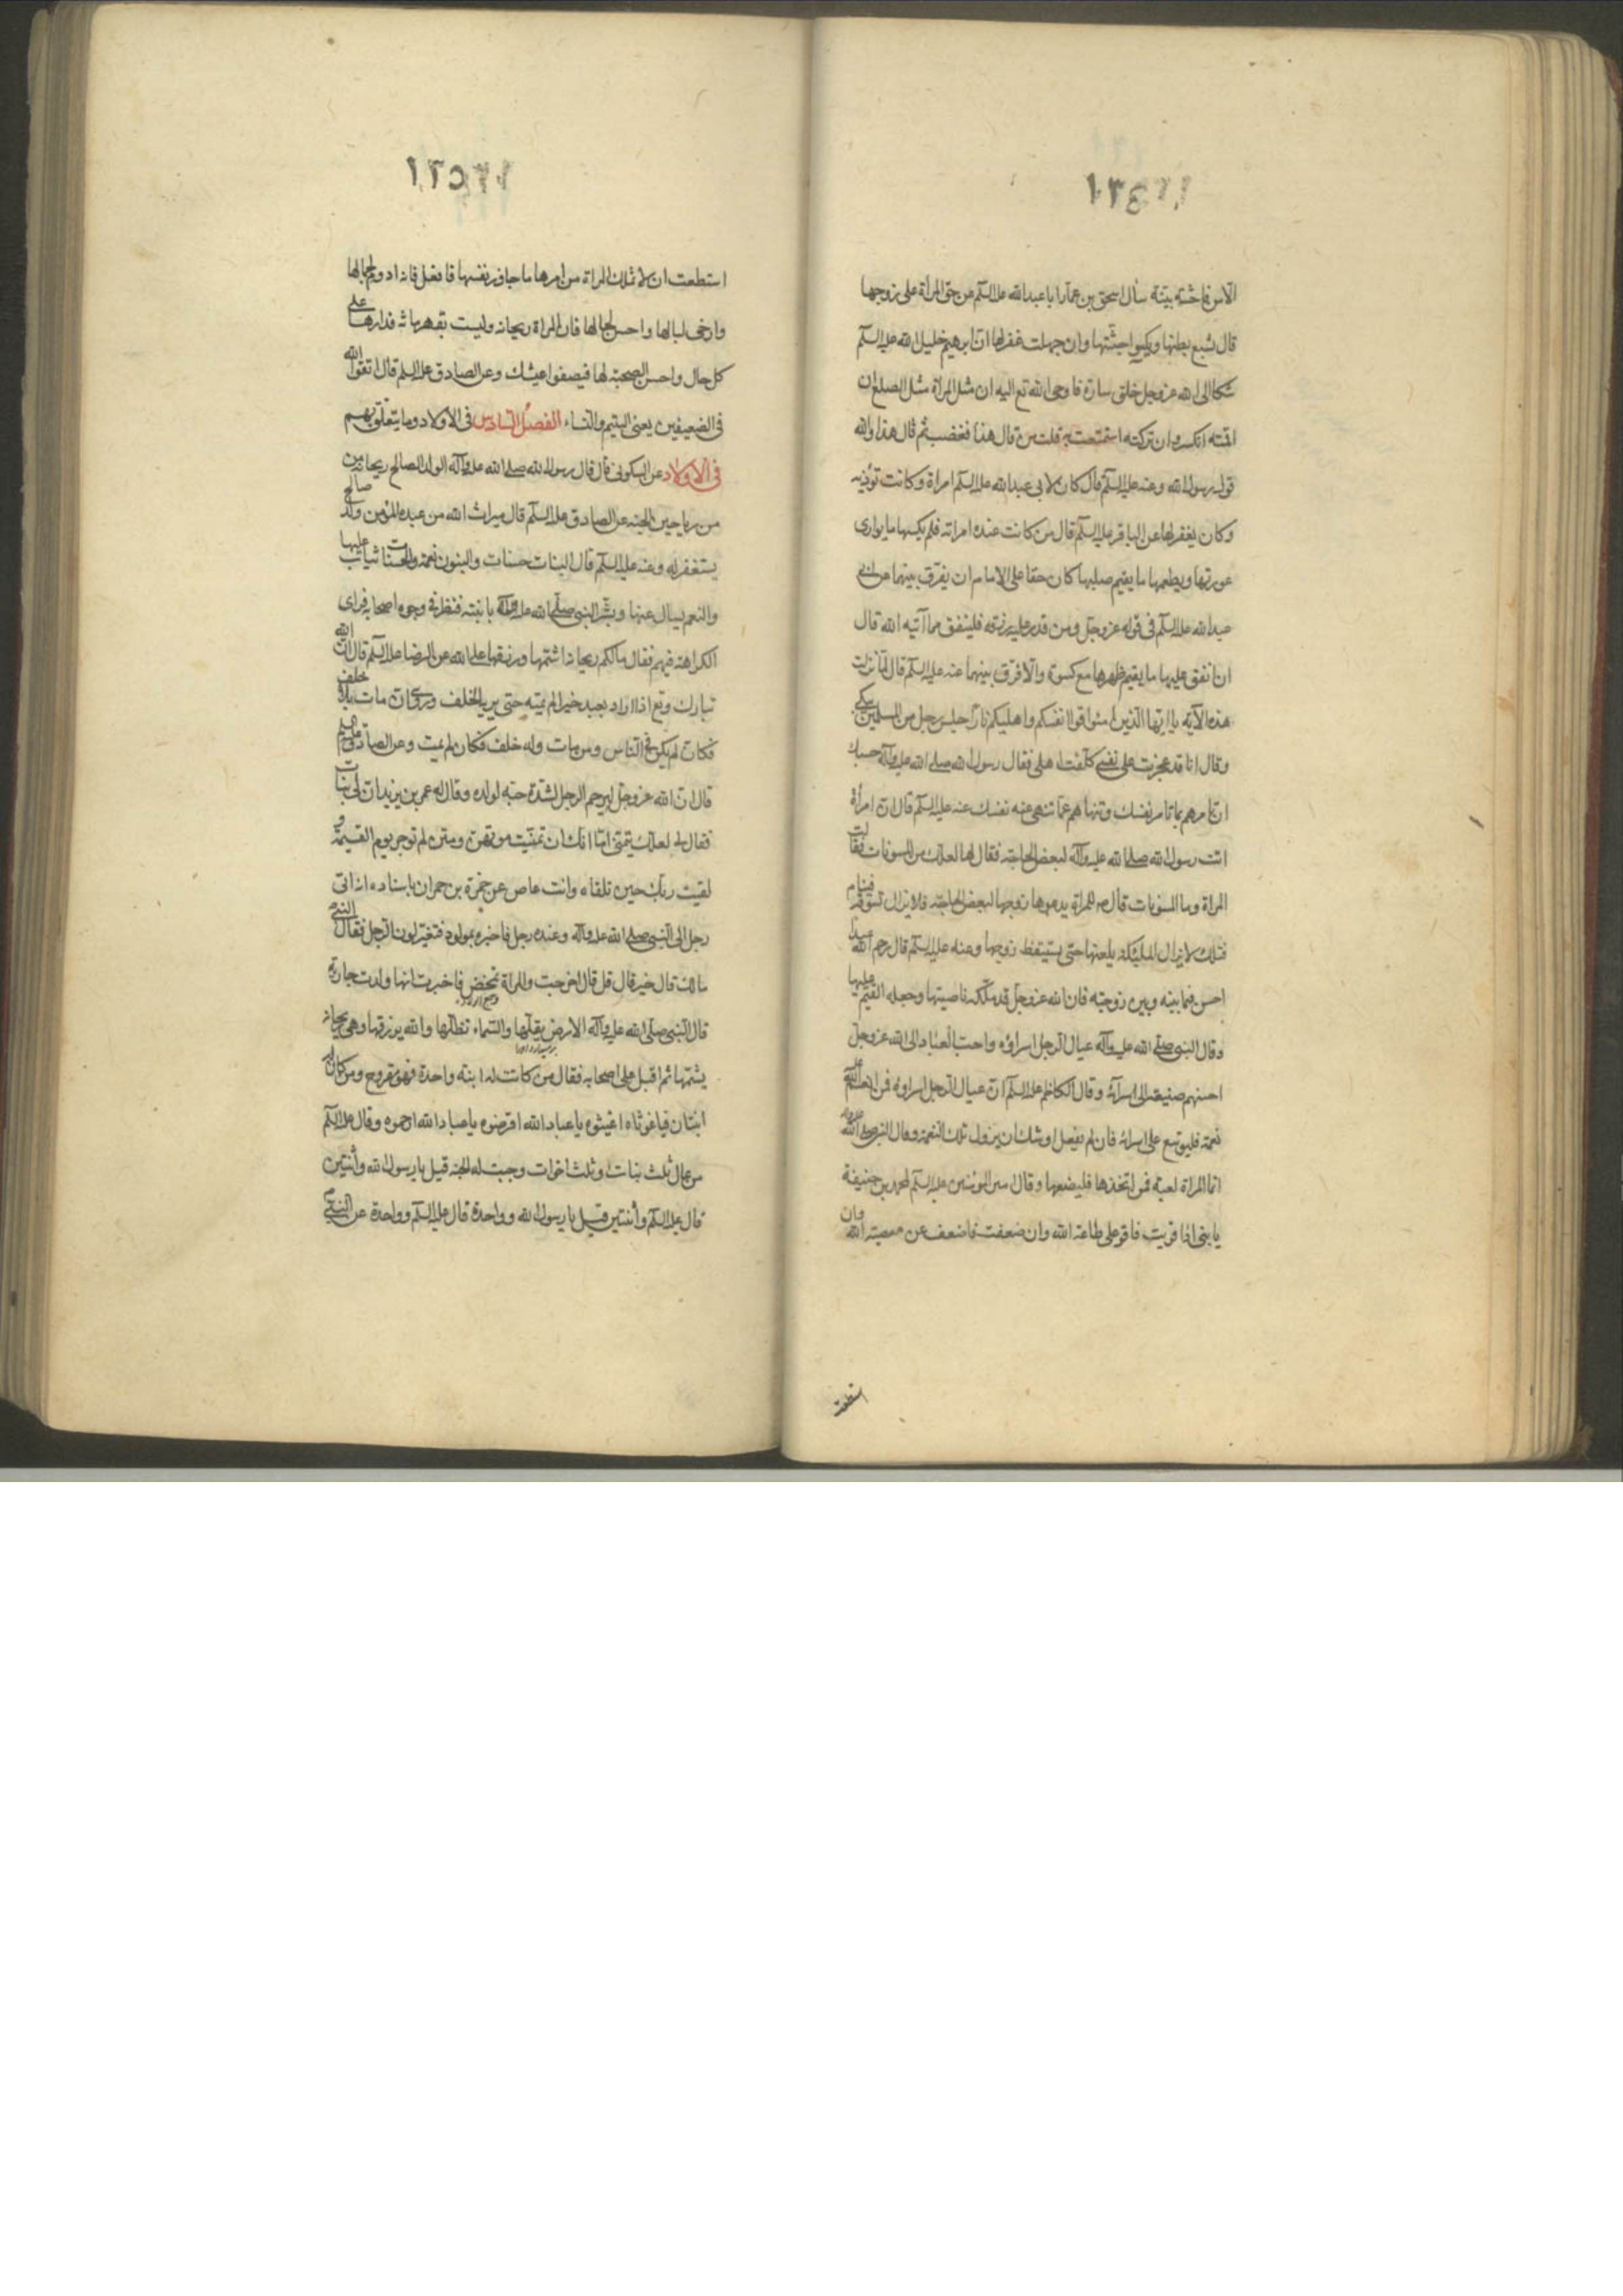 ١٣٤
الا من فاحشة بينة سأل اسحق بن عمار ابا عبد الله عليه السلم عن حق المرأة على زوجها
قال يشبع بطنها ويكسوا جثتها وان جهلت غفر لها ان ابرهيم خليل الله عليه السلم
شكا الى الله عز وجل خلق سارة فاوحى الله تع اليه ان مثل المرأة مثل الضلع ان
اقمته انكسر وان تركته استمتعت به قلت من قال هذا فغضب ثم قال هذا والله
قول رسول الله وعنه عليه السلم قال كان لابى عبد الله عليه السلم امراة وكانت تؤذيه
وكان يغفر لها عن الباقر عليه السلم قال من كانت عنده امراته فلم يكسها ما يوارى
عورتها ويطعمها ما يقيم صلبها كان حقا على الامام ان يفرق بينهما عن ابى
عبد الله عليه السلم فى قوله عز وجل ومن قدر عليه رزقه فلينفق مما آتيه الله قال
ان انفق عليها ما يقيم ظهرها مع كسوة والا فرق بينهما عنه عليه السلم قال لما نزلت
هذه الآية يا ايها الذين امنوا قوا انفسكم واهليكم نارا جلس رجل من المسلمين يبكى
وقال انا قد عجزت على نفسى كلفت اهلى فقال رسول الله صلى الله عليه وآله حسبك
ان تامرهم بما تامر نفسك وتنهاهم عما تنهى عنه نفسك عنه عليه السلم قال ان امرأة
اتت رسول الله صلى الله عليه وآله لبعض الحاجة فقال لها لعلك من المسوفات فقالت
المراة وما المسوفات قال هى المراة يدعوها زوجها لبعض الحاجة فلا يزال تسوفه فينام
فتلك لا يزال الملئكة يلعنها حتى يستيقظ زوجها وعنه عليه السلم قال رحم الله عبدا
احسن فيما بينه وبين زوجته فان الله عز وجل قد ملكه ناصيتها وجعله القيم عليها
وقال النبى صلى الله عليه وآله عيال الرجل اسراؤه واحب العباد الى الله عز وجل
احسنهم صنيعة الى اسرائه وقال الكاظم عليه السلم ان عيال الرجل اسراؤه فمن انعم الله عليه
نعمة فليوسع على اسرائه فان لم يفعل اوشك ان يزول تلك النعمة وقال النبى صلى الله عليه وآله
انما المراة لعبة فمن اتخذها فليضعها وقال امير المؤمنين عليه السلم لمحمد بن حنيفة
يا بنى اذا قويت فاقو على طاعة الله وان ضعفت فاضعف عن معصية الله وان
استطعت
١٣٥
استطعت ان لا تملك المراة من امرها ما جاوز نفسها فافعل فانه ادوم لجمالها
وارخى لبالها واحسن لحالها فان المراة ريحانه وليست بقهرمانة فدارها على
كل حال واحسن الصحبة لها فيصفوا عيشك وعن الصادق عليه السلم قال اتقوا الله
فى الضعيفين يعنى اليتيم والنساء الفصل السادس فى الاولاد وما يتعلق بهم
فى الاولاد عن السكونى قال قال رسول الله صلى الله عليه وآله الولد الصالح ريحانة من
من رياحين الجنة عن الصادق عليه السلم قال ميراث الله من عبده المؤمن ولد صالح
يستغفر له وعنه عليه السلم قال البنات حسنات والبنون نعمة والحسنات يثاب عليها
والنعم يسال عنها وبشر النبى صلى الله عليه وآله بابنته فنظر فى وجوه اصحابه فراى
الكراهة فيهم فقال ما لكم ريحانة اشتمها ورزقها على الله عن الرضا عليه السلم قال ان الله
تبارك وتع اذا اراد بعبد خيرا لم يمته حتى يريه الخلف وروى ان من مات بلا خلف
فكان لم يكن فى الناس ومن مات وله خلف فكان لم يمت وعن الصادق عليه السلم
قال ان الله عز وجل ليرحم الرجل لشدة حبه لولده وقال له عمر بن يزيد ان لى بنات
فقال له لعلك تتمنى اما انك ان تمنيت موتهن ومتن لم توجر يوم القيمة و
لقيت ربك حين تلقاه وانت عاص عن حمزة بن حمران باسناده انه اتى
رجل الى النبى صلى الله عليه وآله وعنده رجل فاخبره بمولود فتغير لون الرجل فقال النبى
مالك قال خير قال قل قال خرجت والمراة تمخض فاخبرت انها ولدت جارية
قال النبى صلى الله عليه وآله الارض يقلها والسماء تظلها والله يرزقها وهى ريحانة
يشتمها ثم اقبل على اصحابه فقال من كانت له ابنة واحدة فهو مقروح ومن كان له
ابنتان فيا غوثاه اغيثوه يا عباد الله اقرضوه يا عباد الله ارحموه وقال عليه السلم
من عال ثلث بنات او ثلث اخوات وجبت له الجنة قيل يا رسول الله واثنتين
قال عليه السلم واثنتين قيل يا رسول الله وواحدة قال عليه السلم وواحدة عن النبى